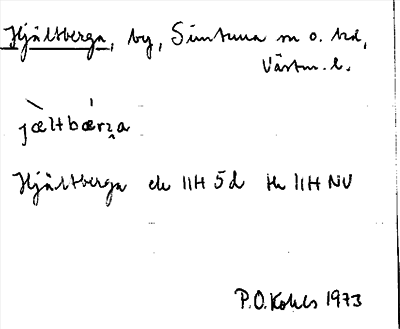 Hjältberga, by, Simtuna sn o. hd,
Västm. l.
jæltbærʒa
Hjältberga ek 11H 5d tk 11H NV
P.O. Kohls 1973